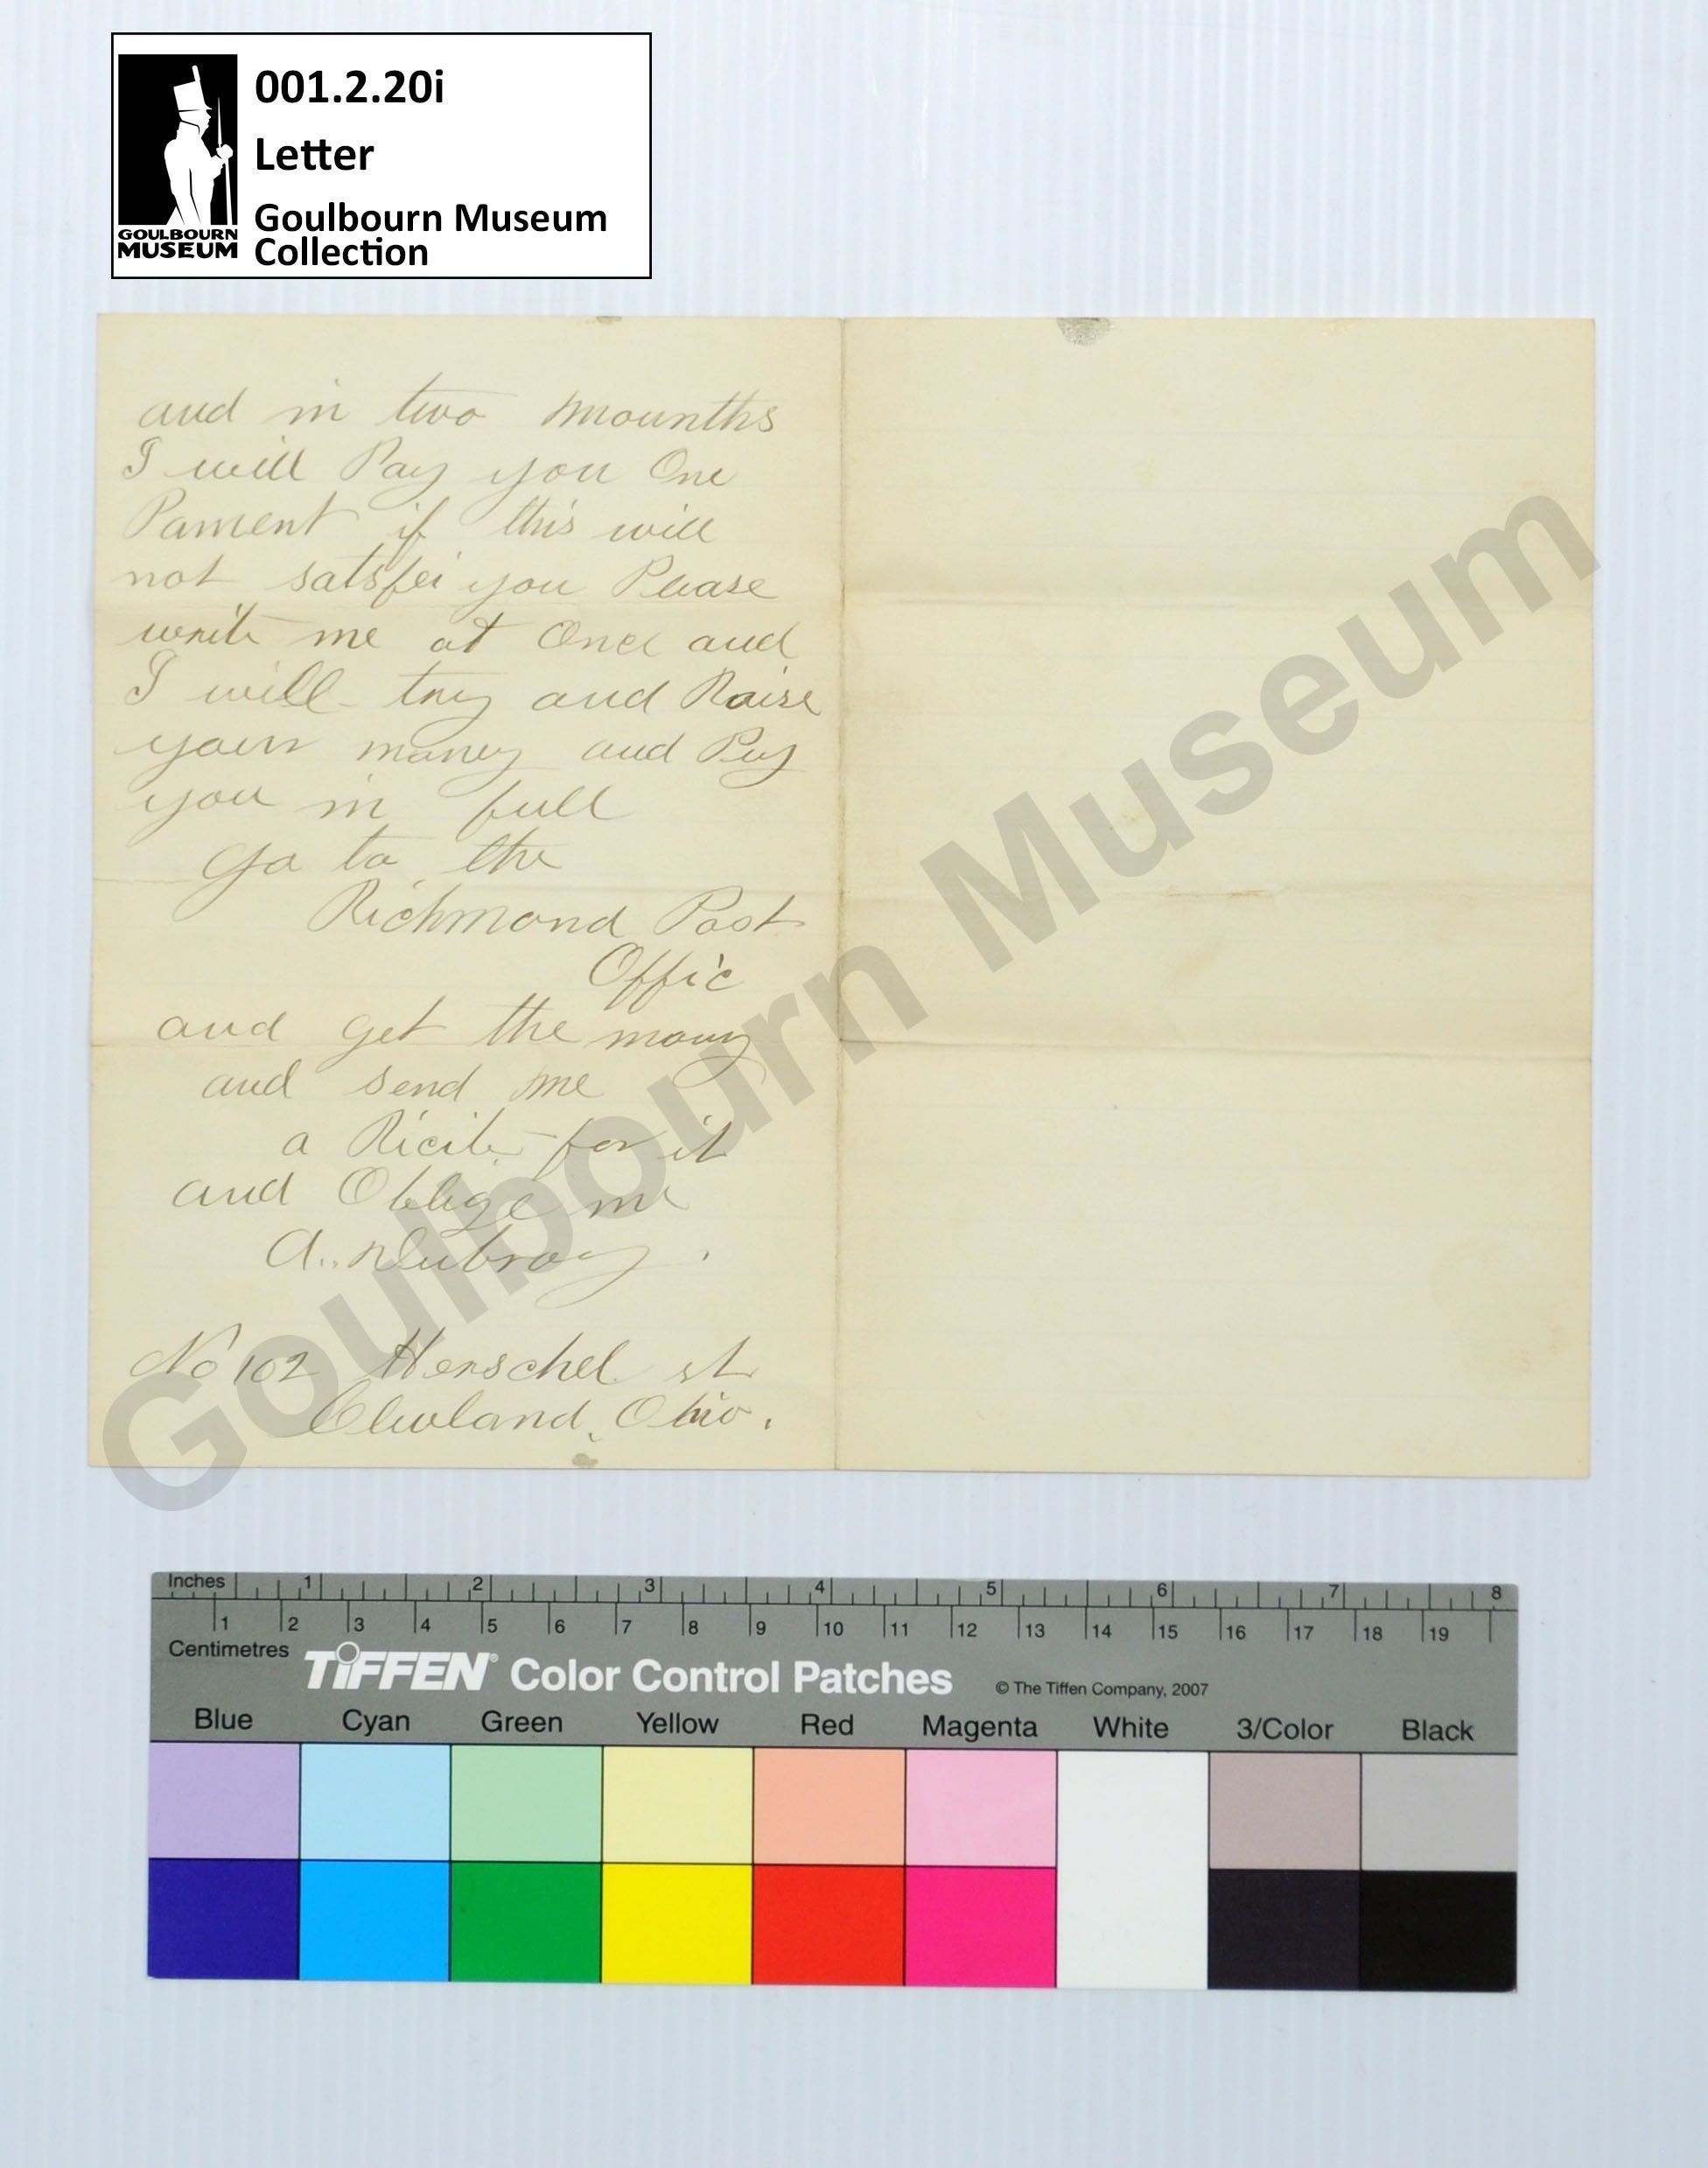 001.2.20i
Letter
Goulbourn Museum
Collection
GOULBOURN
MUSEUM
and in two mounths
I will Pay you One
Pament if this will
not satsfei you Please
write me at Once and
I will try and Raise
your money and Pay
you in full
go to the
Richmond Post
Offic
and get the mony
and send me
a Ricite for it
and Oblige me
A. Dubroy.
No 102 Herschel st
Clevland, Ohio.
Goulbourn Museum
Inches 1 2 3 4 5 6 7 8
1 2 3 4 5 6 7 8 9 10 11 12 13 14 15 16 17 18 19
Centimetres
TIFFEN® Color Control Patches © The Tiffen Company, 2007
Blue Cyan Green Yellow Red Magenta White 3/Color Black